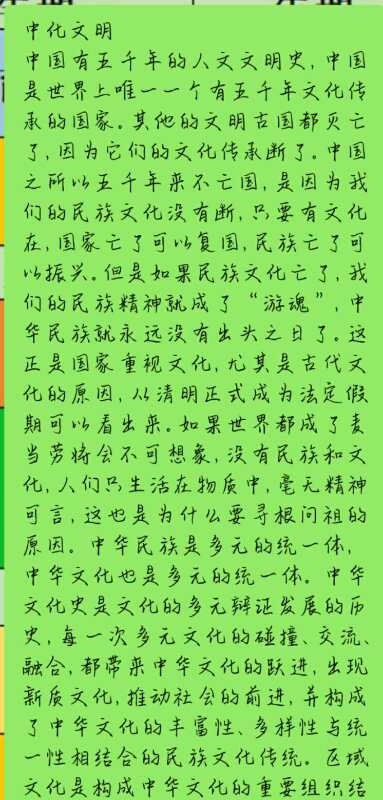 中化文明
中国有五千年的人文文明史,中国
是世界上唯一一个有五千年文化传
承的国家。其他的文明古国都灭亡
了,因为它们的文化传承断了。中国
之所以五千年来不亡国,是因为我
们的民族文化没有断,只要有文化
在,国家亡了可以复国,民族亡了可
以振兴。但是如果民族文化亡了,我
们的民族精神就成了“游魂”,中
华民族就永远没有出头之日了。这
正是国家重视文化,尤其是古代文
化的原因,从清明正式成为法定假
期可以看出来。如果世界都成了麦
当劳将会不可想象,没有民族和文
化,人们只生活在物质中,毫无精神
可言,这也是为什么要寻根问祖的
原因。中华民族是多元的统一体,
中华文化也是多元的统一体。中华
文化史是文化的多元辩证发展的历
史,每一次多元文化的碰撞、交流、
融合,都带来中华文化的跃进,出现
新质文化,推动社会的前进,并构成
了中华文化的丰富性、多样性与统
一性相结合的民族文化传统。区域
文化是构成中华文化的重要组织结